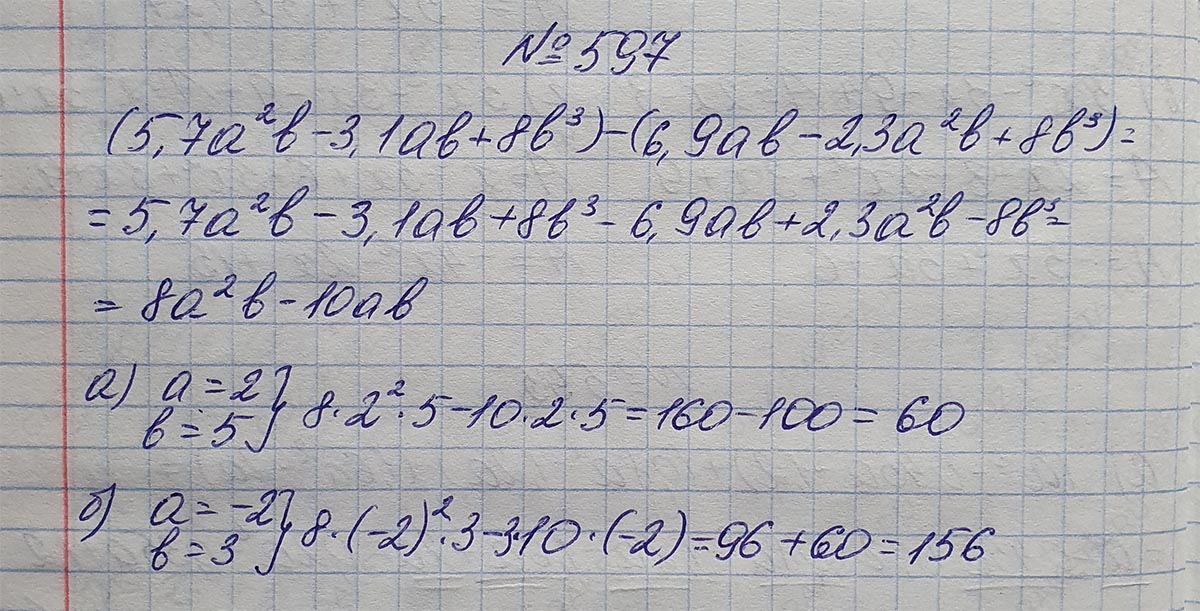 № 597
(5,7a²b - 3,1ab + 8b³) - (6,9ab - 2,3a²b + 8b³) =
= 5,7a²b - 3,1ab + 8b³ - 6,9ab + 2,3a²b - 8b³ =
= 8a²b - 10ab
а) a = 2
b = 5 } 8·2²·5 - 10·2·5 = 160 - 100 = 60
б) a = -2
b = 3 } 8·(-2)²·3 - 3·10·(-2) = 96 + 60 = 156